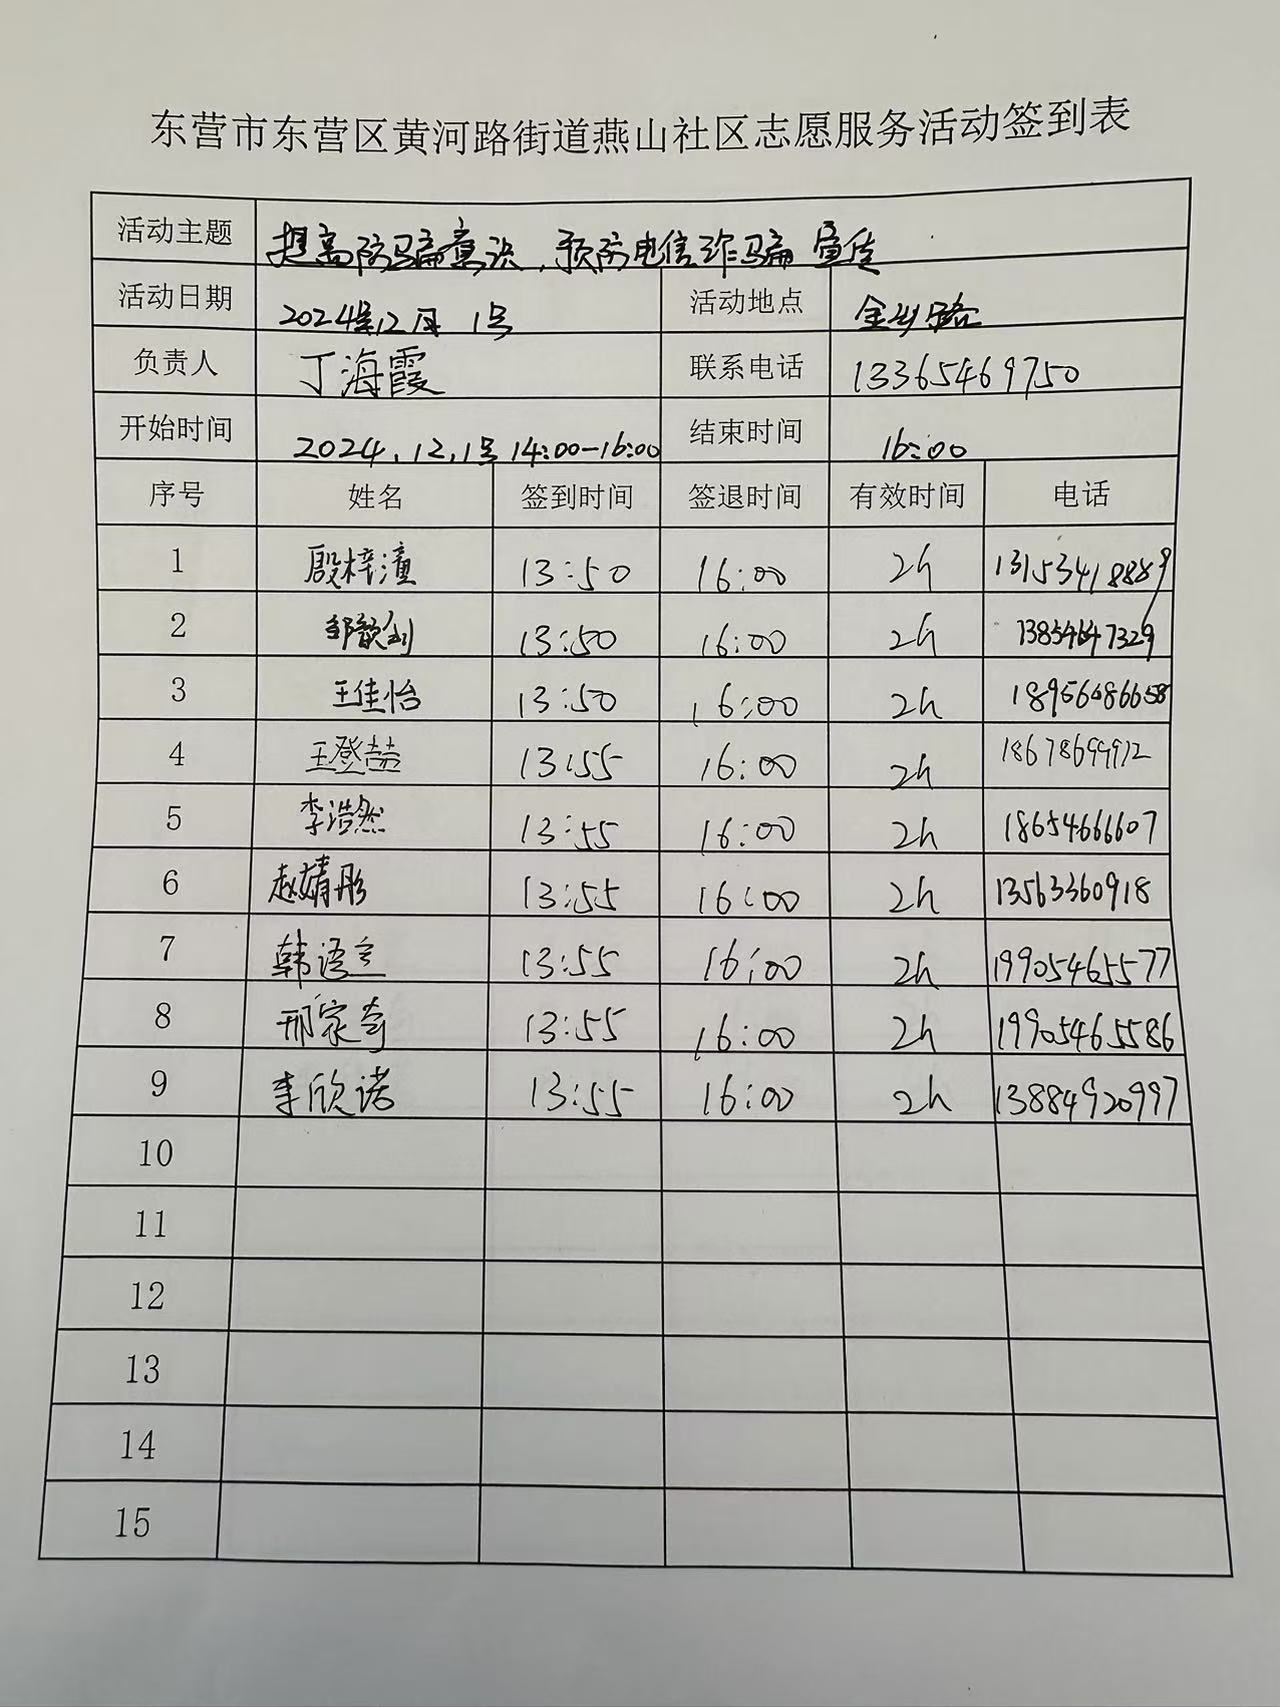 东营市东营区黄河路街道燕山社区志愿服务活动签到表
活动主题 提高防骗意识、预防电信诈骗宣传
活动日期 2024年12月 1号 活动地点 金乡路
负责人 丁海霞 联系电话 13365469750
开始时间 2024.12.1号 14:00-16:00 结束时间 16:00
序号 姓名 签到时间 签退时间 有效时间 电话
1 殷梓潼 13:50 16:00 2h 13153418889
2 13:50 16:00 2h 13854647329
3 王佳怡 13:50 16:00 2h
4 王登喆 13:55 16:00 2h 18678699912
5 李浩然 13:55 16:00 2h 18654666607
6 赵婧彤 13:55 16:00 2h 13563360918
7 韩语兰 13:55 16:00 2h 19905465577
8 邢家奇 13:55 16:00 2h 19905465586
9 李欣诺 13:55 16:00 2h 13884920997
10
11
12
13
14
15